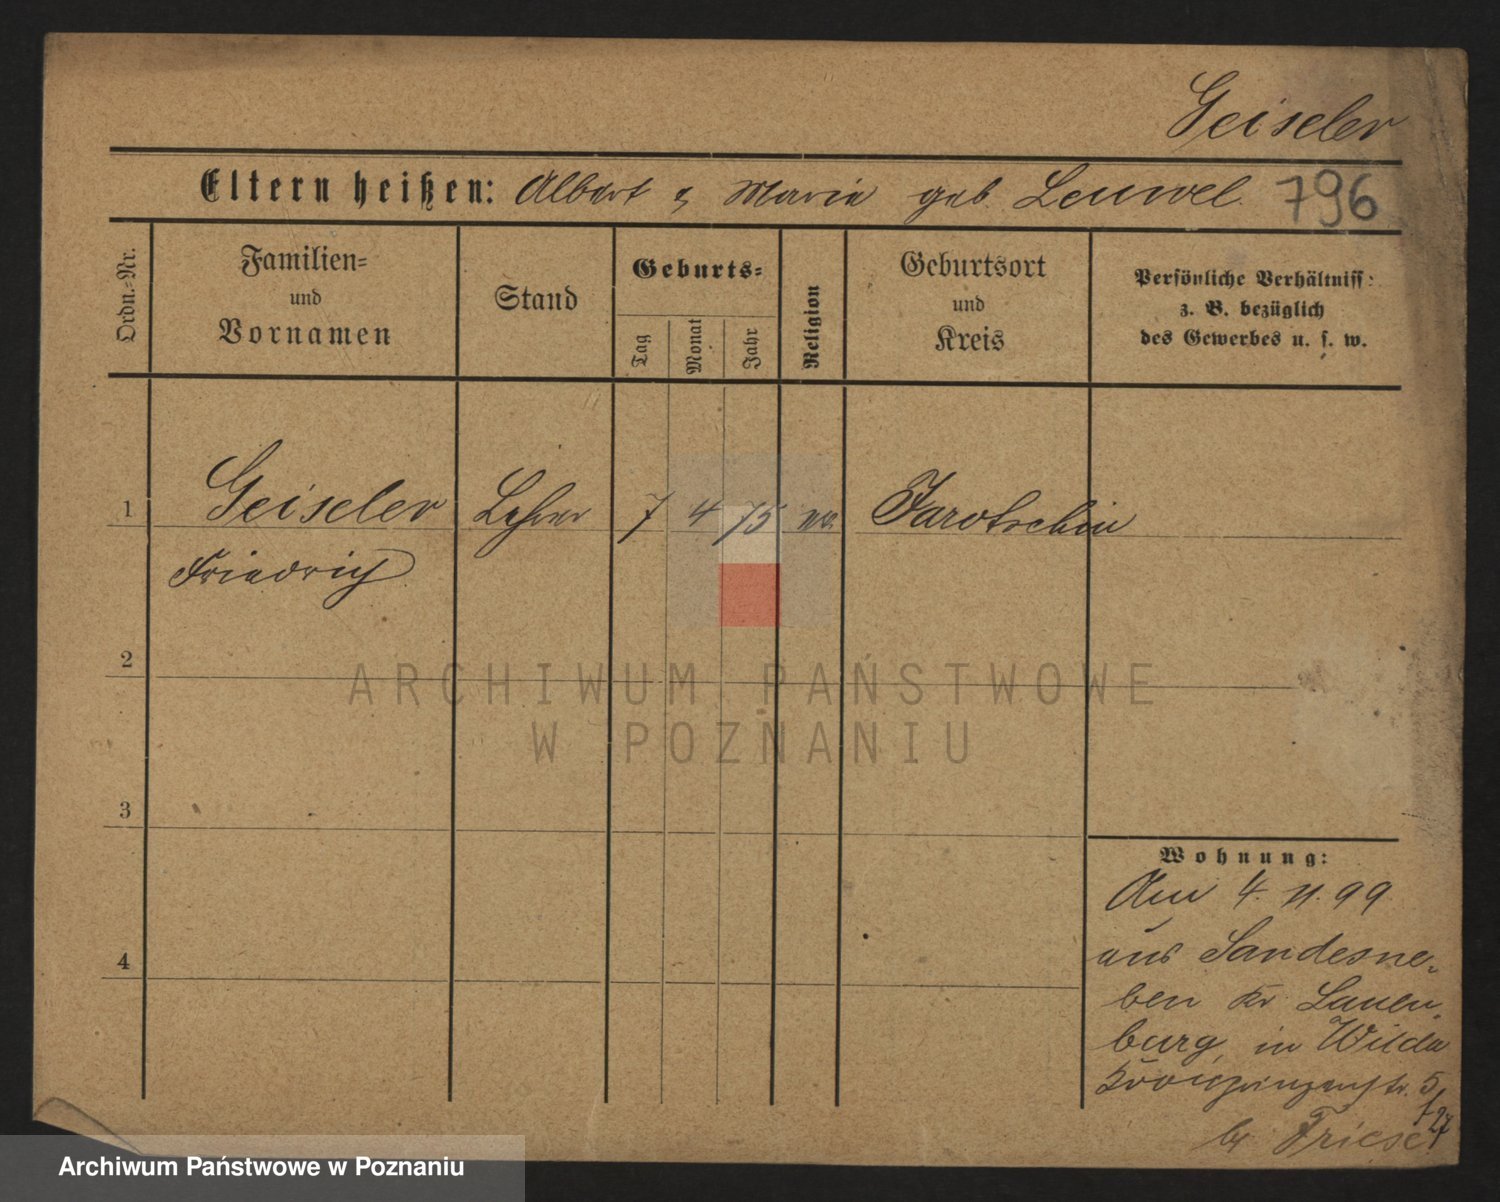 Geiseler
Eltern heißen: Albert & Maria geb. Leuwel 796
Ordn.-Nr.
Familien-
und
Vornamen
Stand
Geburts-
Tag
Monat
Jahr
Religion
Geburtsort
und
Kreis
Persönliche Verhältniss:
z. B. bezüglich
des Gewerbes u. s. w.
1 Geiseler Lehrer 7 4 75 ev. Jarotschin
Friedrich
2
ARCHIWUM PAŃSTWOWE
W POZNANIU
3
4
Wohnung:
Am 4. 11. 99
aus Sandesne-
ben Kr Lauen-
burg, in Wilda
Kronprinzenstr. 5
/27
bei Friese
Archiwum Państwowe w Poznaniu